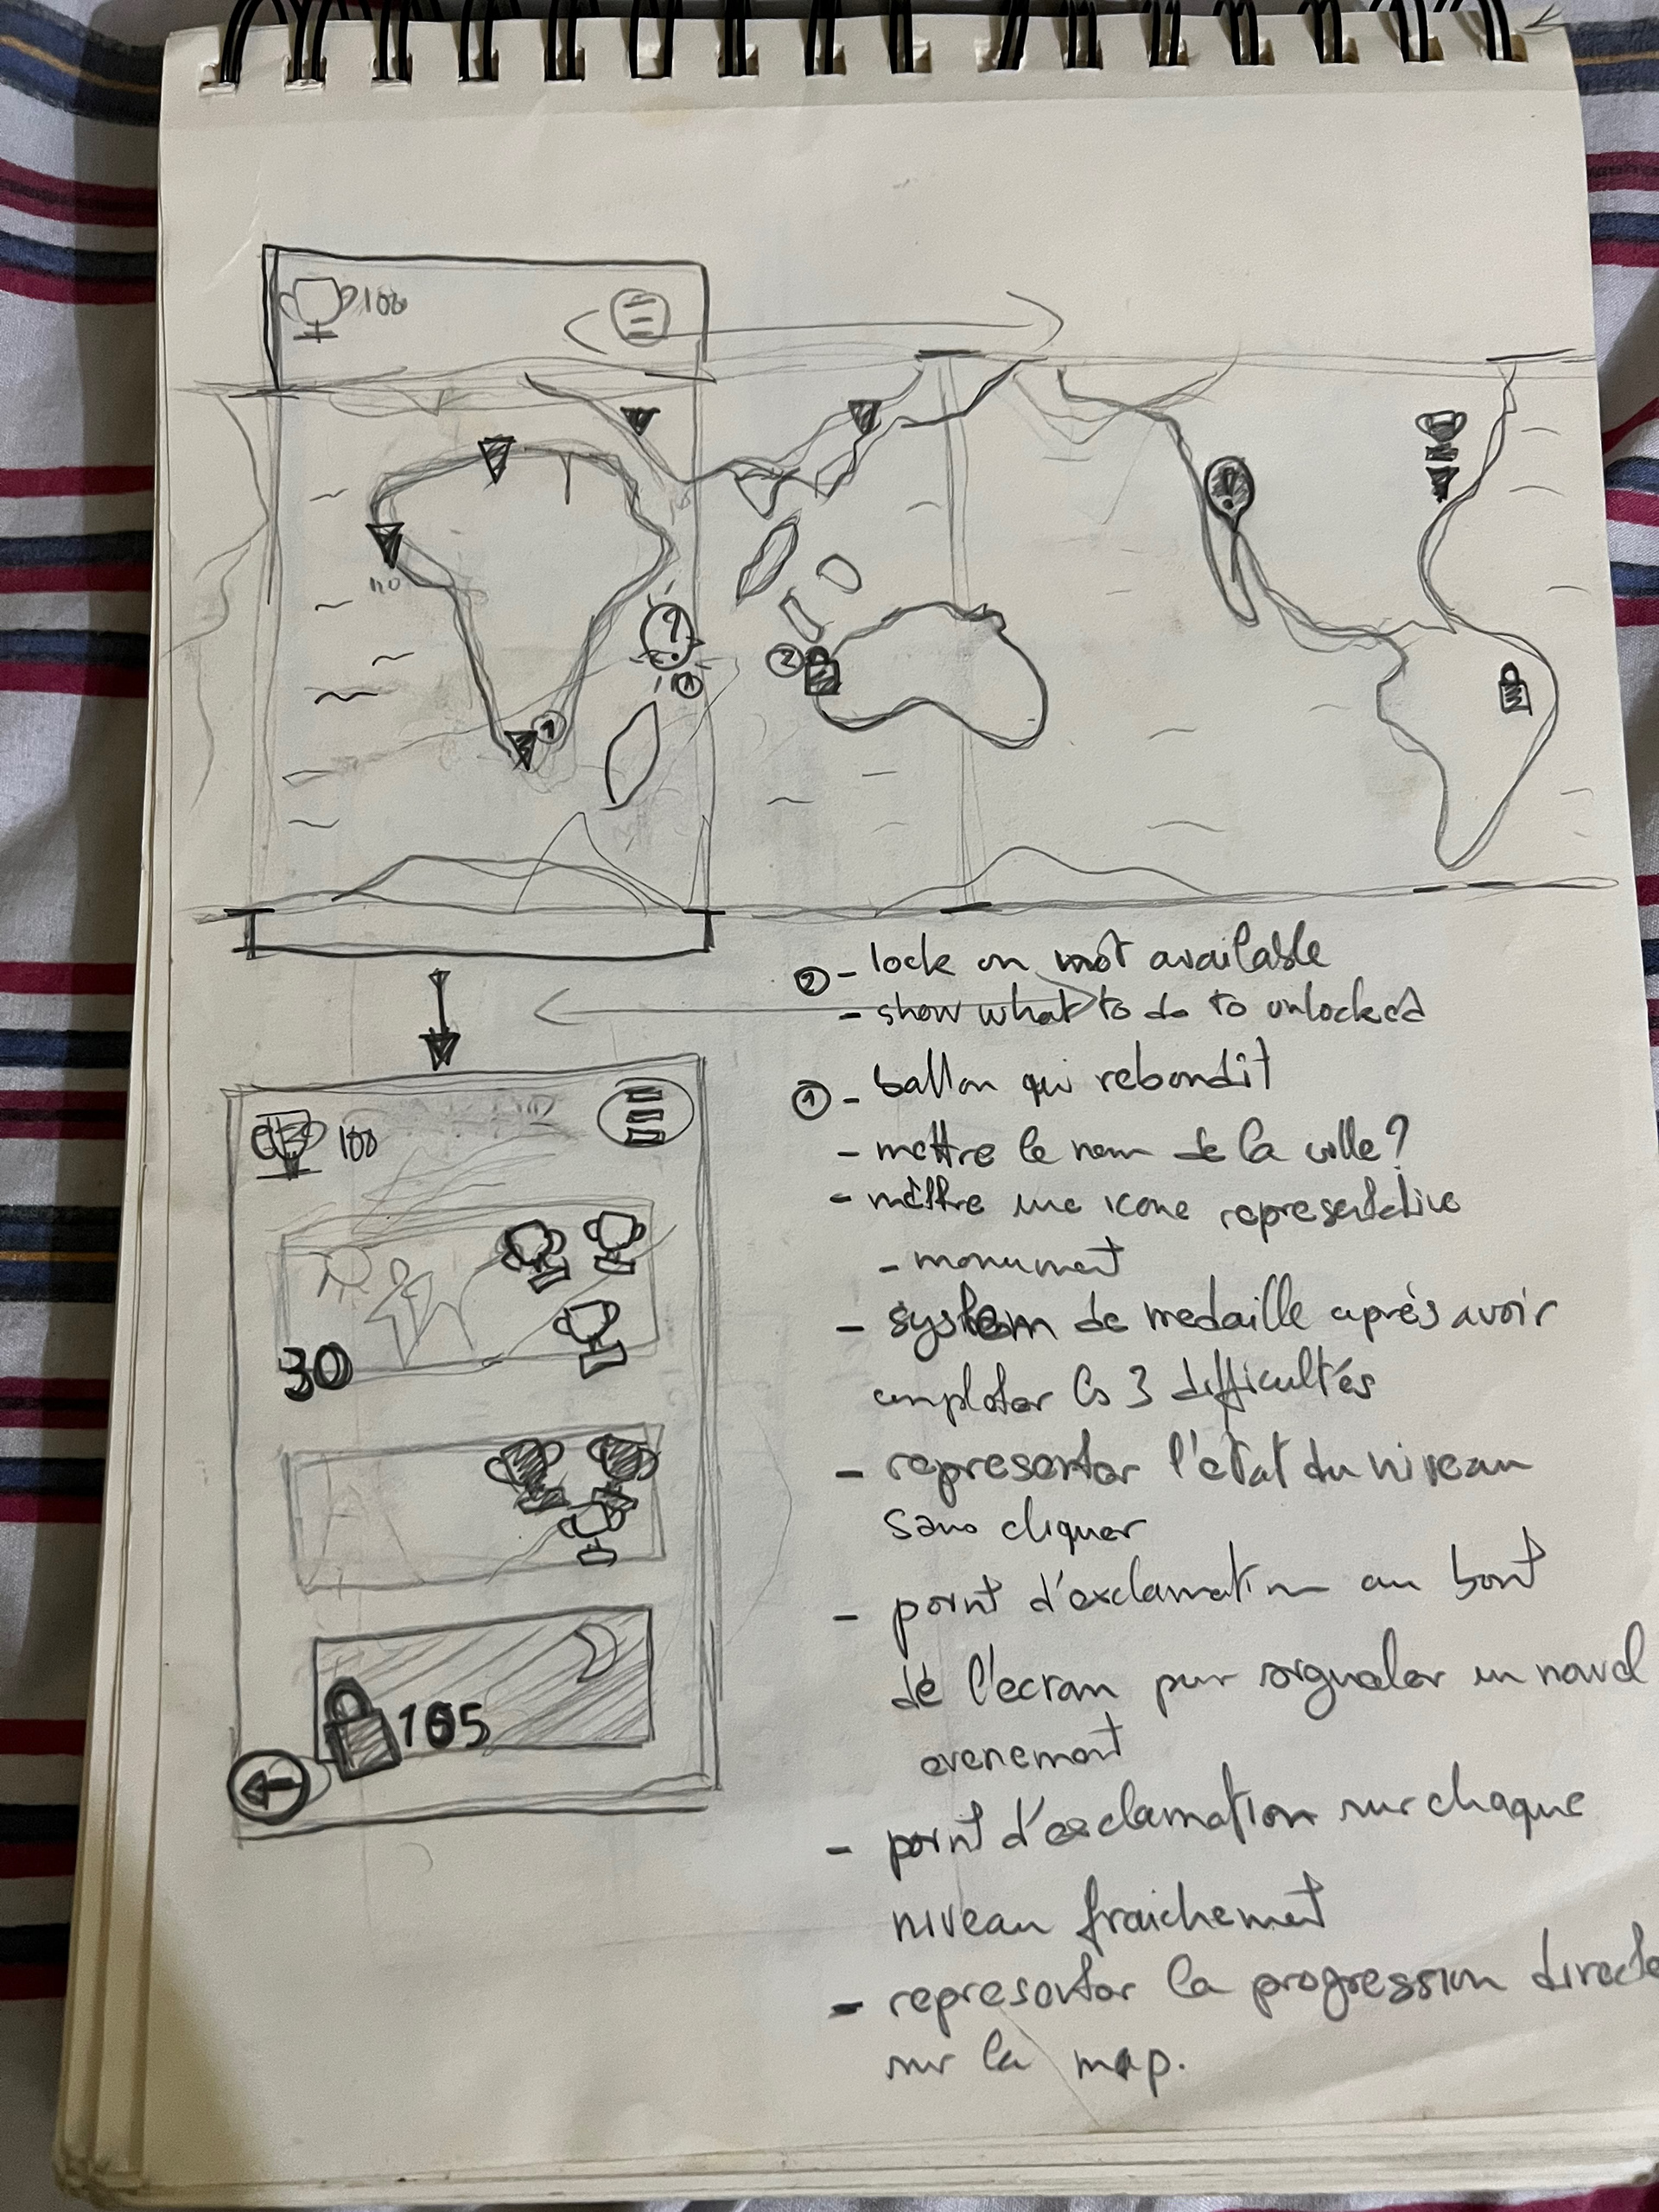 100
no
?
!
1
1
2
② - lock on not available
- show what to do to unlocked
① - ballon qui rebondit
- mettre le nom de la ville?
- mettre une icone representative
- monument
- system de medaille après avoir
completer les 3 difficultés
- representer l'état du niveau
sans cliquer
- point d'exclamation au bout
de l'écran pour signaler un nouvel
evenement
- point d'exclamation sur chaque
niveau fraichement
- representer la progression directe
sur la map.
100
30
105